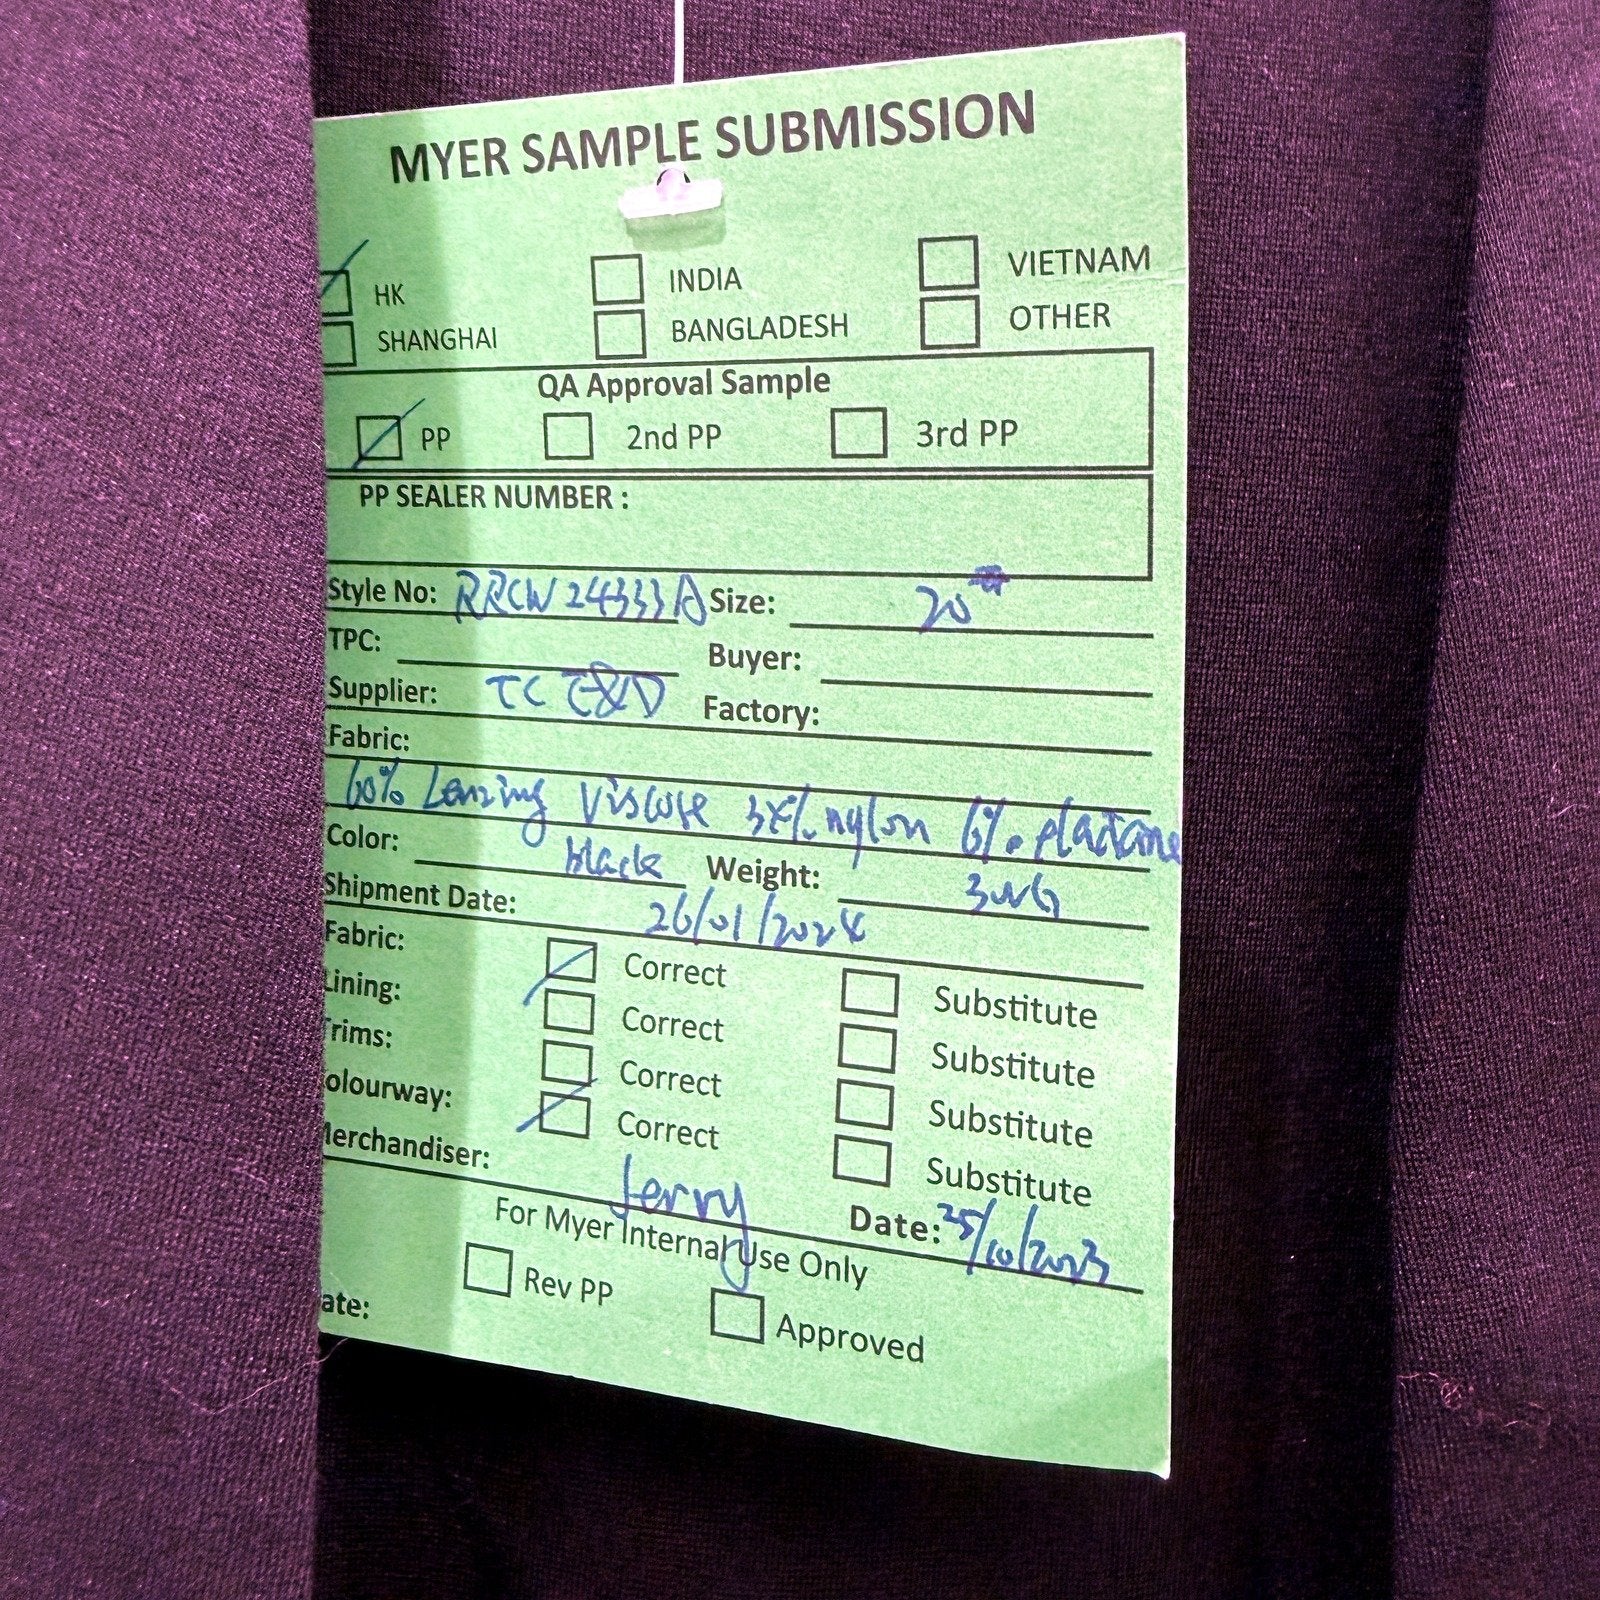 MYER SAMPLE SUBMISSION
HK INDIA VIETNAM
SHANGHAI BANGLADESH OTHER
QA Approval Sample
PP 2nd PP 3rd PP
PP SEALER NUMBER :
Style No: RRCW24333A Size: 20
TPC: Buyer:
Supplier: TC E&D Factory:
Fabric:
60% Lenzing Viscose nylon 6%
Color: black Weight:
Shipment Date: 26/01/2024
Fabric: Correct Substitute
Lining: Correct Substitute
Trims: Correct Substitute
olourway: Correct Substitute
Merchandiser: Jerry Date: 25/10/2023
For Myer Internal Use Only
ate: Rev PP Approved